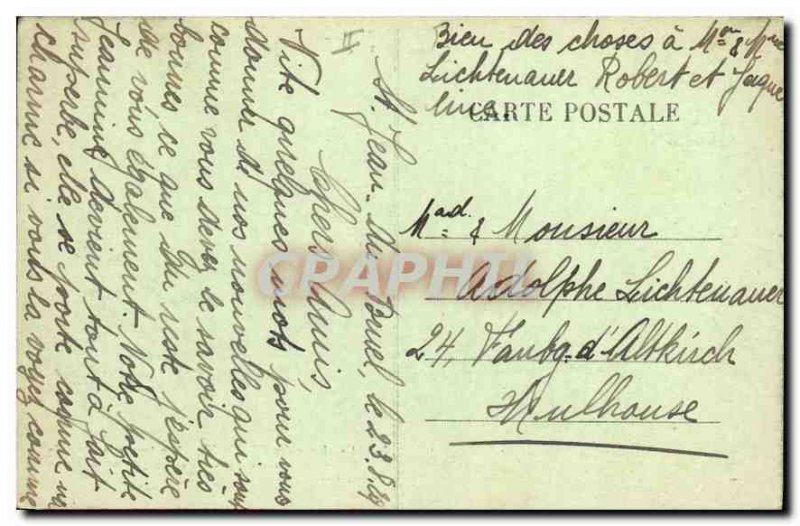 II
St. Jean-du Bruel, le 23.8.39
Chers Amis,
Vite quelques mots pour vous
donner de nos nouvelles qui sont
comme vous devez le savoir très
bonnes, ce que du reste j'espère
de vous également. Notre petite
Jeannine devient tout à fait
superbe, elle se porte comme un
charme si vous la voyez comme
Bien des choses à Mor & Mme
Lichtenauer Robert et Jaque
line.
CARTE POSTALE
Mad. & Monsieur
Adolphe Lichtenauer
24, Faubg. d'Altkirch
Mulhouse
CRAPHTI